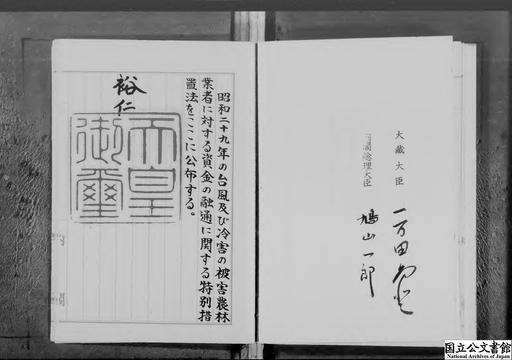 昭和二十九年の台風及び冷害の被害農林
業者に対する資金の融通に関する特別措
置法をここに公布する。
裕仁
天皇
御璽
大蔵大臣 一万田尚登
内閣総理大臣 鳩山一郎
国立公文書館
National Archives of Japan